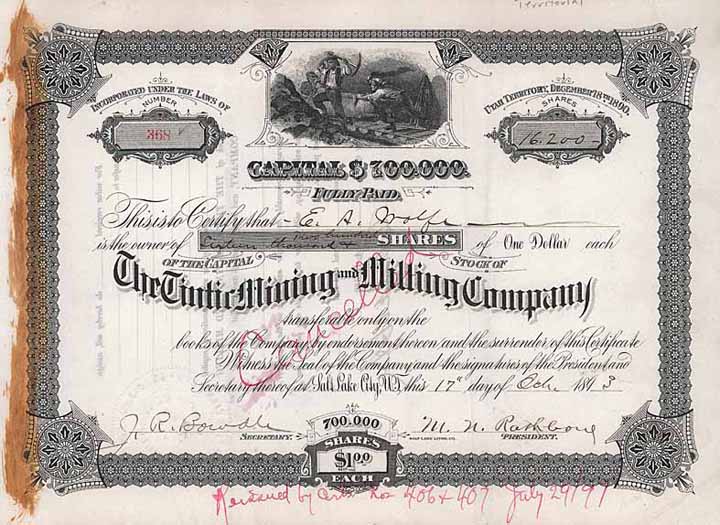 Territorial
INCORPORATED UNDER THE LAWS OF
UTAH TERRITORY, DECEMBER 18TH 1890.
NUMBER
368
SHARES
16.200-
CAPITAL $ 700.000.
FULLY PAID.
This is to Certify that - E. A. Wolfe
is the owner of two hundred SHARES of One Dollar each
thousand &
OF THE CAPITAL STOCK OF
The Tintic Mining and Milling Company
Cancelled
transferable only on the
books of the Company by endorsement thereon and the surrender of this Certificate
Witness the Seal of the Company and the signatures of the President and
Secretary thereof at Salt Lake City, U.T. this 17th day of Oct. 1893
J. R. Bowdle
SECRETARY.
700.000
SHARES
$1.00
EACH
M. N. Rathbone
PRESIDENT.
Reissued by Certs Nos 406 & 407 July 29/97